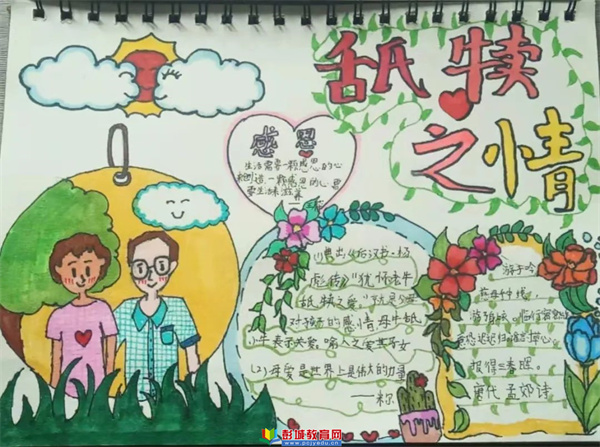 舐犊
之情
感恩
生活需要一颗感恩的心
来创造一颗感恩的心需
要生活来滋养
(1)典出《后汉书·杨
彪传》“犹怀老牛
舐犊之爱”
对孩子的感情母牛舐
小牛表示关爱,喻人之爱其子女
(2)母爱是世界上最伟大的力量
——米尔
游子吟
慈母手中线,
游子身上衣。临行密密缝,
意恐迟迟归。谁言寸草心,
报得三春晖。
唐代 孟郊 诗
彭城教育网
www.pcjyedu.cn